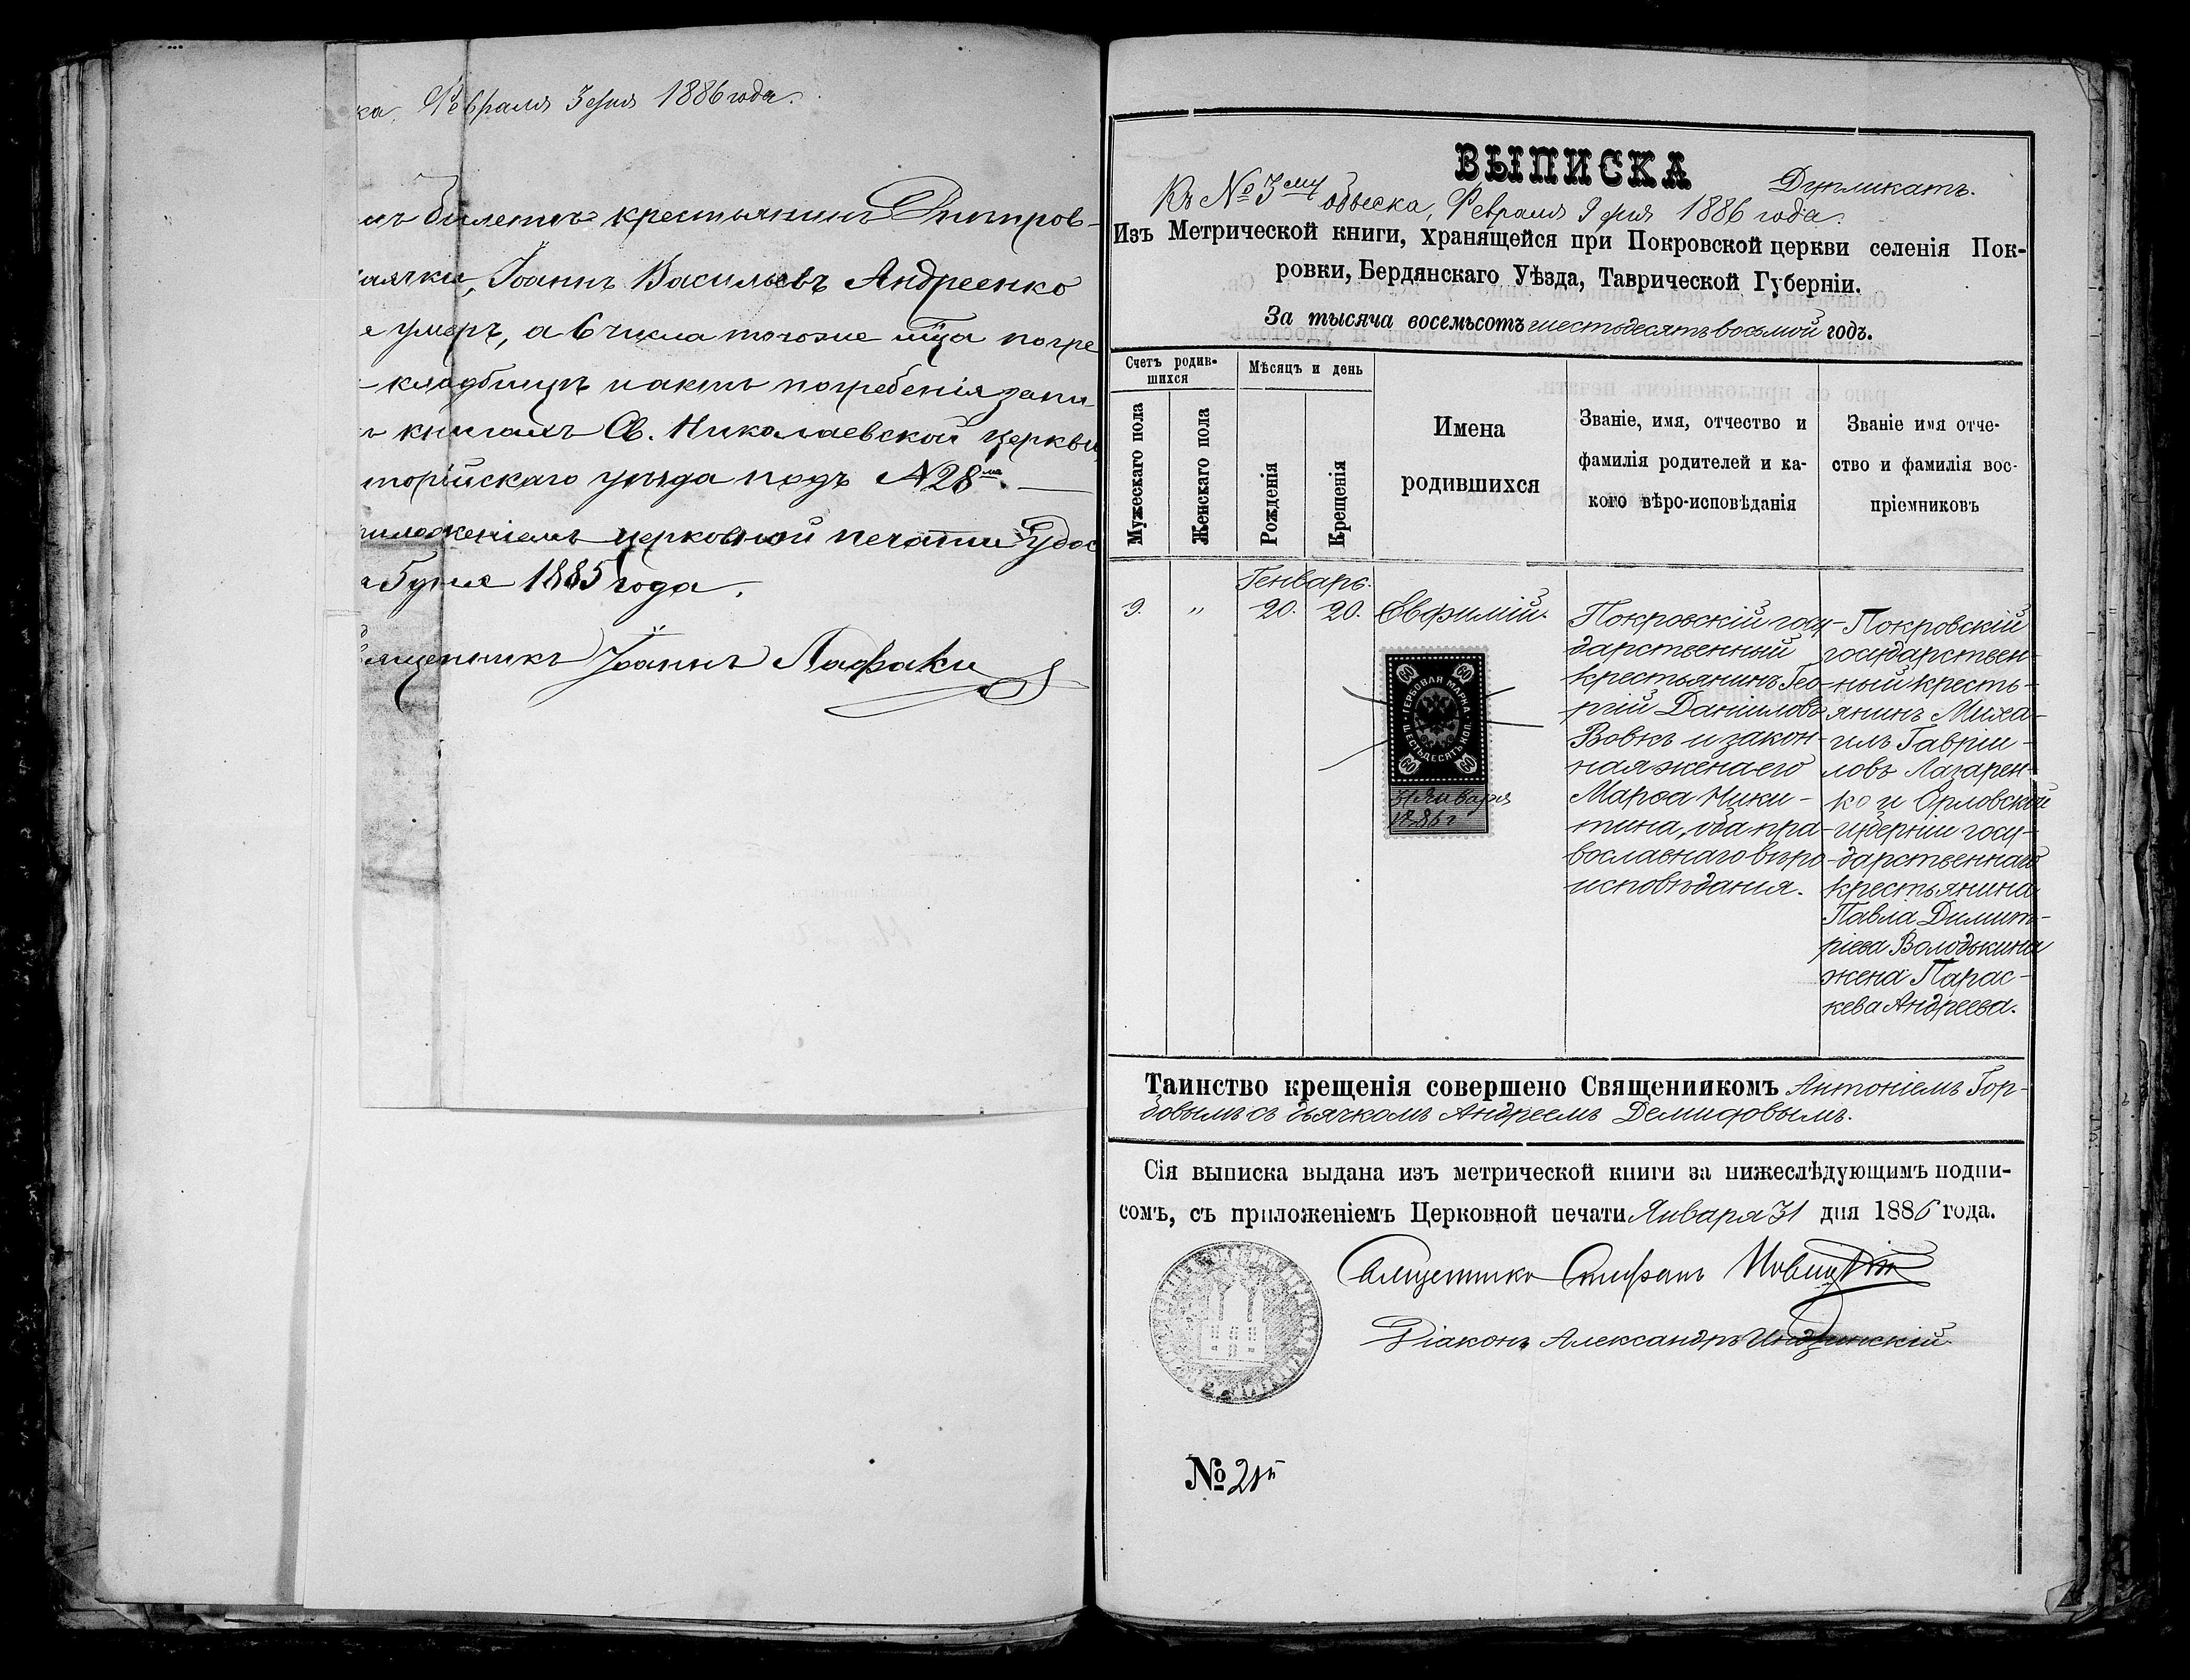 ка, Февраля 3 дня 1886 года.
мъ билетъ крестьянинъ Днѣпров-
аячки, Іоаннъ Васильевъ Андреенко
умеръ, а 6 числа тогоже м͠ца погре
кладбищѣ и актъ погребенія запи-
книгахъ Св. Николаевской церкви
торійскаго уѣзда подъ №28
приложеніемъ церковной печати удос
1885 года.
Священникъ Іоаннъ
ВЫПИСКА
Дупликатъ.
Къ № 3му обыска, Февраля 9 дня 1886 года.
Изъ Метрической книги, хранящейся при Покровской церкви селенія Пок-
ровки, Бердянскаго Уѣзда, Таврической Губерніи.
За тысяча восемьсотъ шестьдесятъ восьмой годъ.
Счетъ родив-
шихся
Мужескаго пола
Женскаго пола
Мѣсяцъ и день
Рожденія
Крещенія
Имена
родившихся
Званіе, имя, отчество и
фамилія родителей и ка-
кого вѣро-исповѣданія
Званіе имя отче-
ство и фамилія вос-
пріемниковъ
Генварь.
9.
"
20.
20.
Евфимій.
Покровскій госу-
дарственный
крестьянинъ Гео-
ргій Даніиловъ
Вовкъ и закон-
ная жена его
Марѳа Ники-
тина, оба пра-
вославнаго вѣро
исповѣданія.
Покровскій
государствен-
ный кресть-
янинъ Миха-
илъ Гавріи-
ловъ Лазарен-
ко и Орловской
губерніи госу-
дарственнаго
крестьянина
Павла Димит-
ріева Володькина
жена Парас-
кева Андреева.
60 60
ГЕРБОВАЯ МАРКА
ШЕСТЬДЕСЯТЪ КОП.
60 60
31 Января
1886 г
Таинство крещенія совершено Священникомъ Антоніемъ Гор-
бовымъ съ дьячкомъ Андреемъ Демидовымъ.
Сія выписка выдана изъ метрической книги за нижеслѣдующимъ подпи-
сомъ, съ приложеніемъ Церковной печати Января 31 дня 1886 года.
Священникъ Стефанъ Новицкій
Діаконъ Александръ
№ 25